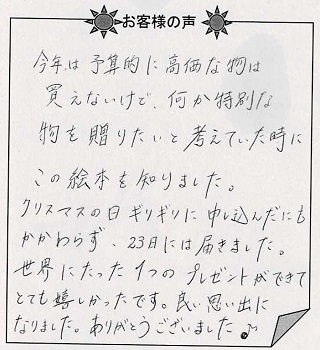 お客様の声
今年は予算的に高価な物は
買えないけど、何か特別な
物を贈りたいと考えていた時に
この絵本を知りました。
クリスマスの日ギリギリに申し込んだにも
かかわらず、23日には届きました。
世界にたった1つのプレゼントができて
とても嬉しかったです。良い思い出に
なりました。ありがとうございました♪